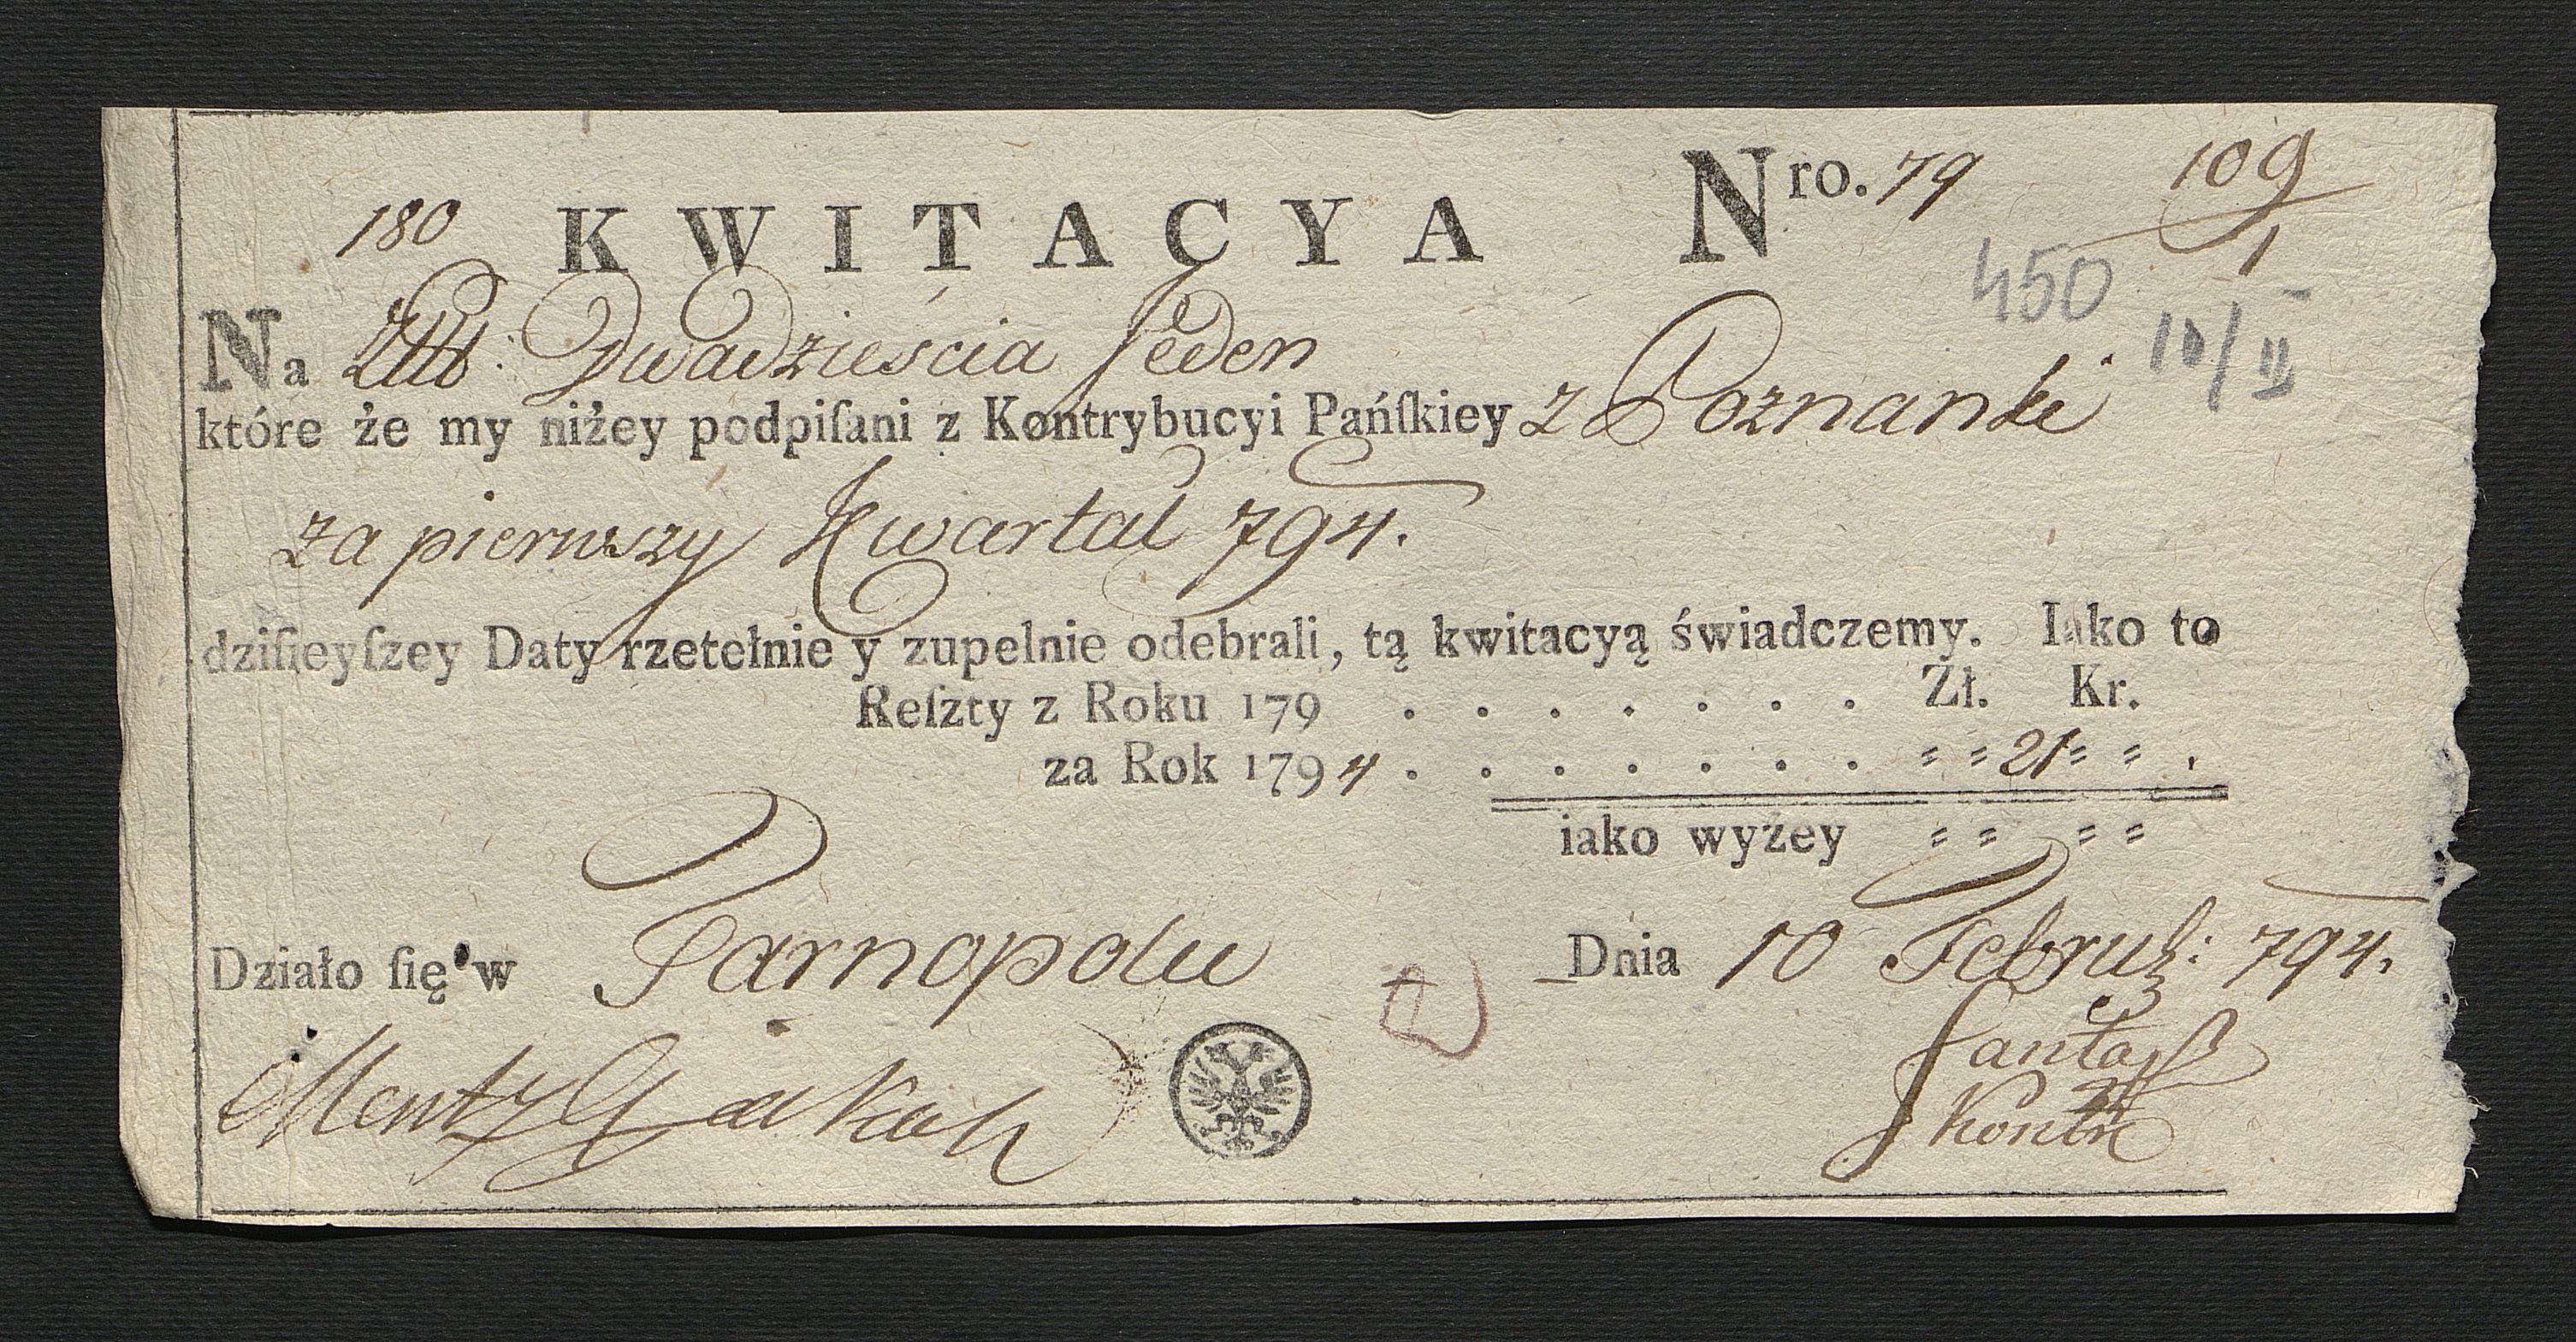 Nro. 79 109/1
180 KWITACYA
450
10/II
Na Złł: Dwadzieścia Jeden
które że my niżey podpiſani z Kontrybucyi Pańſkiey z Poznanki
za pierwszy Kwartał 794.
dziſieyſzey Daty rzetelnie y zupelnie odebrali, tą kwitacyą świadczemy. Iako to
Reſzty z Roku 179 . . . . . . . Zł. Kr.
za Rok 1794 . . . . . . . = = 21 = = .
iako wyżey = = = =
Działo ſię w Tarnopolu Dnia 10 Febru: 794.
Kontr